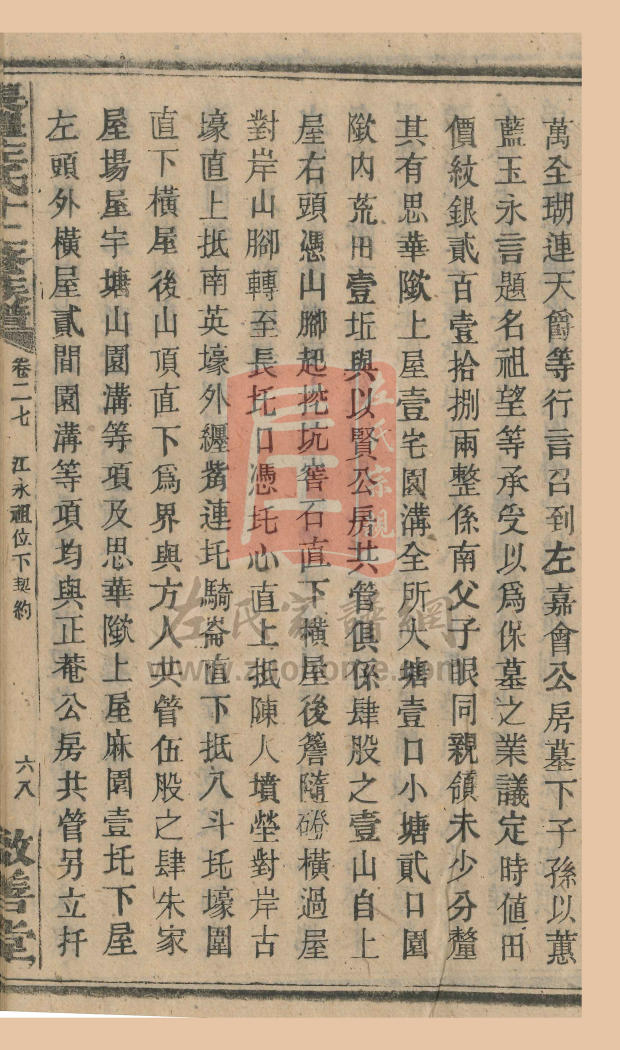 萬全瑚連天爵等行言召到左嘉會公房墓下子孫以蕙
藍玉永言題名祖望等承受以爲保墓之業議定時値田
價紋銀貳百壹拾捌兩整係南父子眼同親領未少分釐
其有思華陇上屋壹宅園溝全所大塘壹口小塘貳口園
陇內荒田壹坵與以賢公房共管俱係肆股之壹山自上
屋右頭憑山腳起挖坑窖石直下橫屋後簷隨磴橫過屋
對岸山腳轉至長圫口憑圫心直上抵陳人墳塋對岸古
壕直上抵南英壕外纏嘴連圫騎崙直下抵八斗圫壕圍
直下橫屋後山頂直下爲界與方人共管伍股之肆朱家
屋場屋宇塘山園溝等項及思華陇上屋麻園壹圫下屋
左頭外橫屋貳間園溝等項均與正菴公房共管另立扦
左氏十二修族譜
卷二七
江永祖位下契約
六八
敬善堂
左氏宗親
左氏家譜網
www.zuohome.com